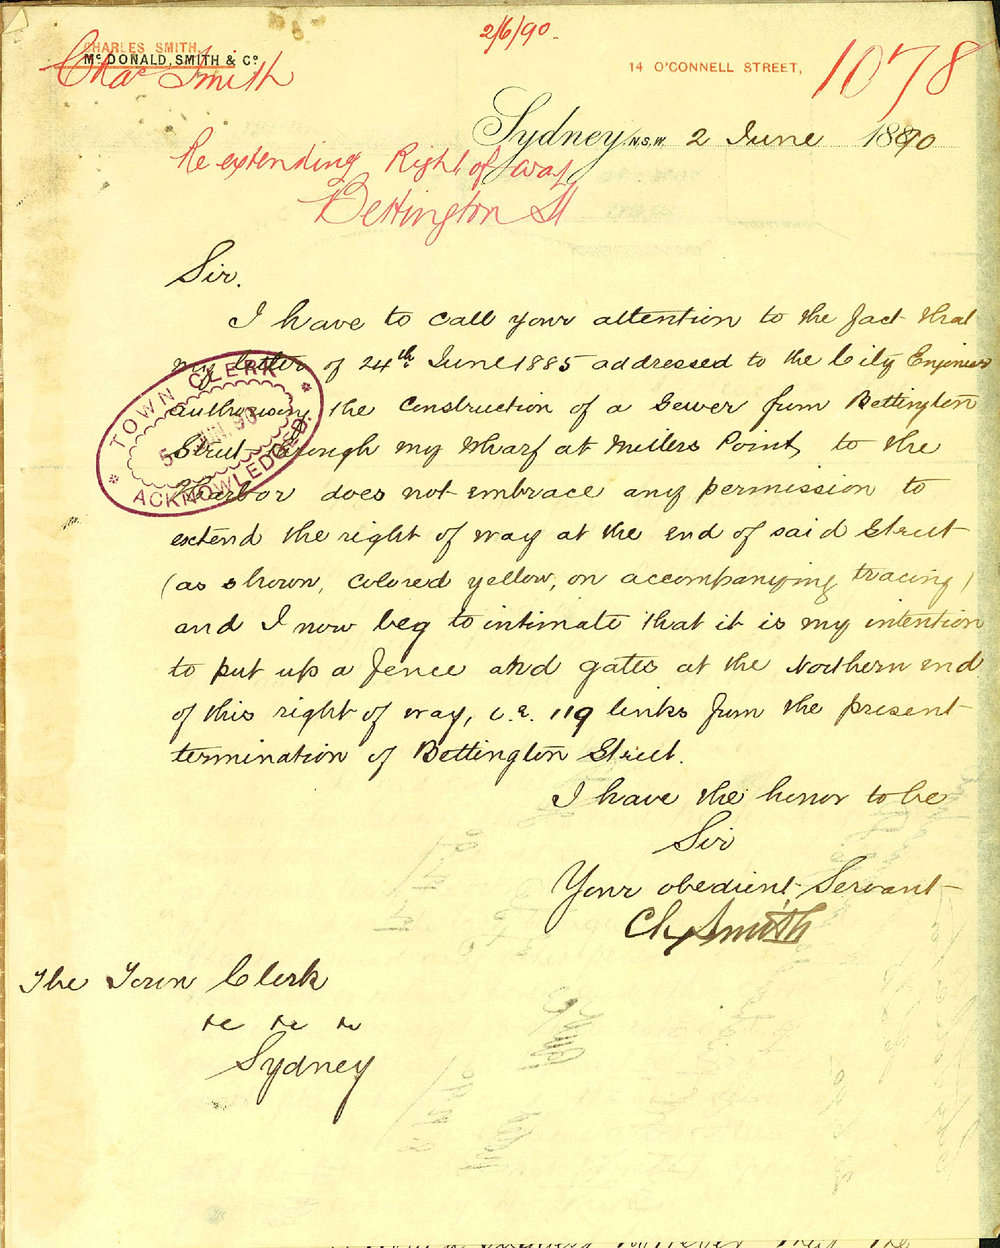 2/6/90.
CHARLES SMITH,
Mc DONALD, SMITH & Co
Chas Smith
14 O'CONNELL STREET,
1078
Sydney, N.S.W. 2 June 1890
Re extending Right of way
Bettington St
Sir.
I have to call your attention to the fact that
my letter of 24th June 1885 addressed to the City Engineer
authorising the Construction of a Sewer from Bettington
Street through my Wharf at Millers Point, to the
Harbor does not embrace any permission to
extend the right of way at the end of said Street
(as shown, colored yellow, on accompanying tracing)
and I now beg to intimate that it is my intention
to put up a fence and gates at the Northern end
of this right of way, i.e. 119 links from the present
termination of Bettington Street.
TOWN CLERK
5 JUN. 90
ACKNOWLEDGED.
I have the honor to be
Sir
Your obedient Servant
Chs Smith
The Town Clerk
&c &c &c
Sydney